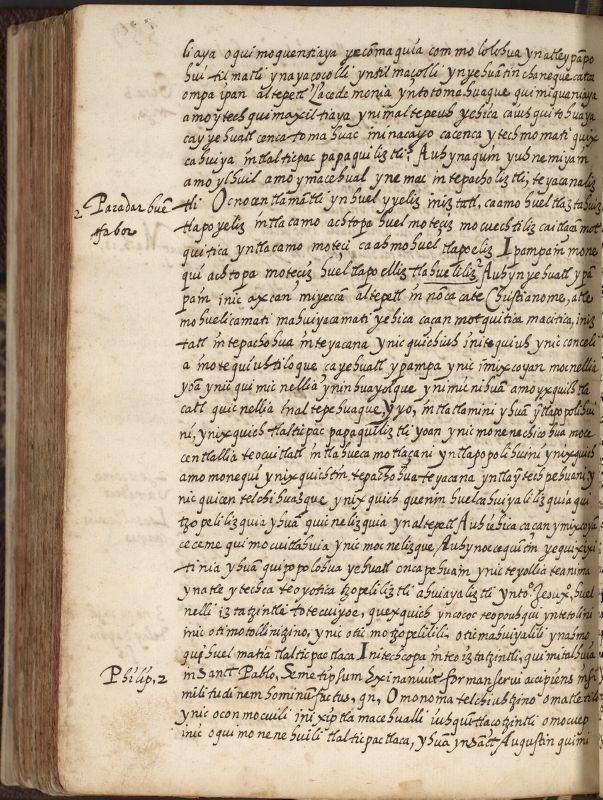 liaya oquimoquentiaya yecōmaquia commololohua ynatley pāpo
hui tilmatli ynayaçoçolli yntilmaçolli ynyehuātin chanequecatca
ompa ipan altepetl Lacedemonia yntotomahuaque quimiquaniaya
amo ytech quimaxiltiaya ynimaltepeuh yehica ca iuh quitohuaya
ca yyehuatl cenca tomahuac ininacayo ca cenca ytech momati quix
cahuiya intlalticpac papaquiliztli? Auh ynaquin yuhnemiya in
amo ylhuil amo ymacehual ynemac intepacholiztli, teyacanaliz
tli
2 Paradar buē
fabor
Ocno centlamātli ynhuel yyeliz iniztatl, ca amo huel tlaztahuiz
tlapoyeliz intlacamo achtopa huel moteciz mocuechtiliz caitlacamot
quitica yntlacamo moteci ca ahmo huel tlapoeliz Ipampa in mone
qui achtopa moteciz huel tlapoelliz tlahueliliz? Auh ynyehuatl y pā
pa in inic axcan miyeccā altepetl in nōca cate Christianome, atle
mohuelicamati mahuiyacamati yehica ca çan motquitica macitica, iniz
tatl intepachohua inteyacana ynic quichiuh initequiuh ynic conceli
a inotequiuhtiloque ca yehuatl ypampa ynic imixcoyan mocnellia
yoā ynic quimicnellia yninhuayolque ynimicnihuan amo yxquich tla
catl quicnellia inaltepehuaque, yyo, intlatlamini yhuā ytlapopolhui
ni, ynixquich tlalticpac papaquiliztli yoan ynic monenechicohua moce
centlallia teocuitlatl intlahueca motlaçani yntlapopolihuini ynixquich
amo monequi ynixquichtin tepachohua teyacana yntlaytech pehuani, y
nic quicentelchihuazque ynixquich quenin huelcahuiyaliliz quia qui
tzopelilizquia yhuā quicnelizquia ynaltepetl Auh iehica ca çan ymixcoya
ceceme quimocuitlahuia ynic mocnelizque, Auh ynoceequitin yequixixi
tinia yhuā quipopolohua yehuatl oncapehua in ynic teyollia teanima
ynatle ytechca teoyotica tzopeliliztli ahuiayaliztli ynto.° Jesu x.°, huel
nelli iztatzintli totecuiyoe, quexquich ynococ teopouhqui yntetolini
inic otimotollinitzino, ynic otitmotzopelilili, otimahuiyalili ynaamo
quihuel matia tlalticpactlaca Initechcopa inteoiztatzintli, quimitalhuia
in Sanct Pablo, Semetipsum Exinaniuit formam serui accipiens insi
Philip, 2
militudinem hominū factus, qn, Omonomatelchiuhtzino omatlet
ynic oconmocuili inixiptla macehualli iuhqui tlacotzintli omocuep
inic oquimonenehuili tlalticpactlaca, yhuā ynSāct Augustin quimi